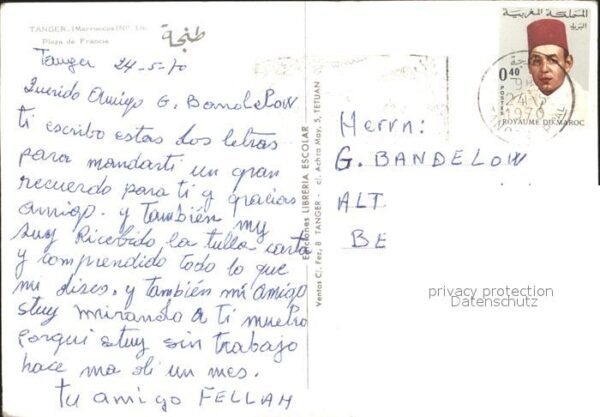 TANGER. (Marruecos) Nº
Plaza de Francia
طنجة
Tanger 24-5-70
Querido Amigo G. Bandelow
ti escribo estas dos letras
para mandarti un gran
recuerdo para ti y gracias
amigo. y también my
suy Ricebido la tulla carta
y comprendido todo lo que
mi dises. y también mi amigo
stuy mirando a ti muetro
porqui stuy sin trabajo
hace ma di un mes.
tu amigo FELLAH
Ediciones LIBRERIA ESCOLAR
c/. Achra May, 5, TETUAN
Ventas C/. Fez, 8 TANGER -
المملكة المغربية
البريد
0,40
POSTES
ROYAUME DU MAROC
1970
Herrn:
G. BANDELOW
ALT
BE
privacy protection
Datenschutz